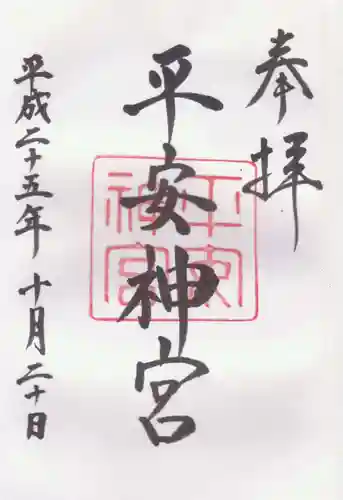 奉拝
平安神宮
平安
神宮
平成二十五年 十月二十日